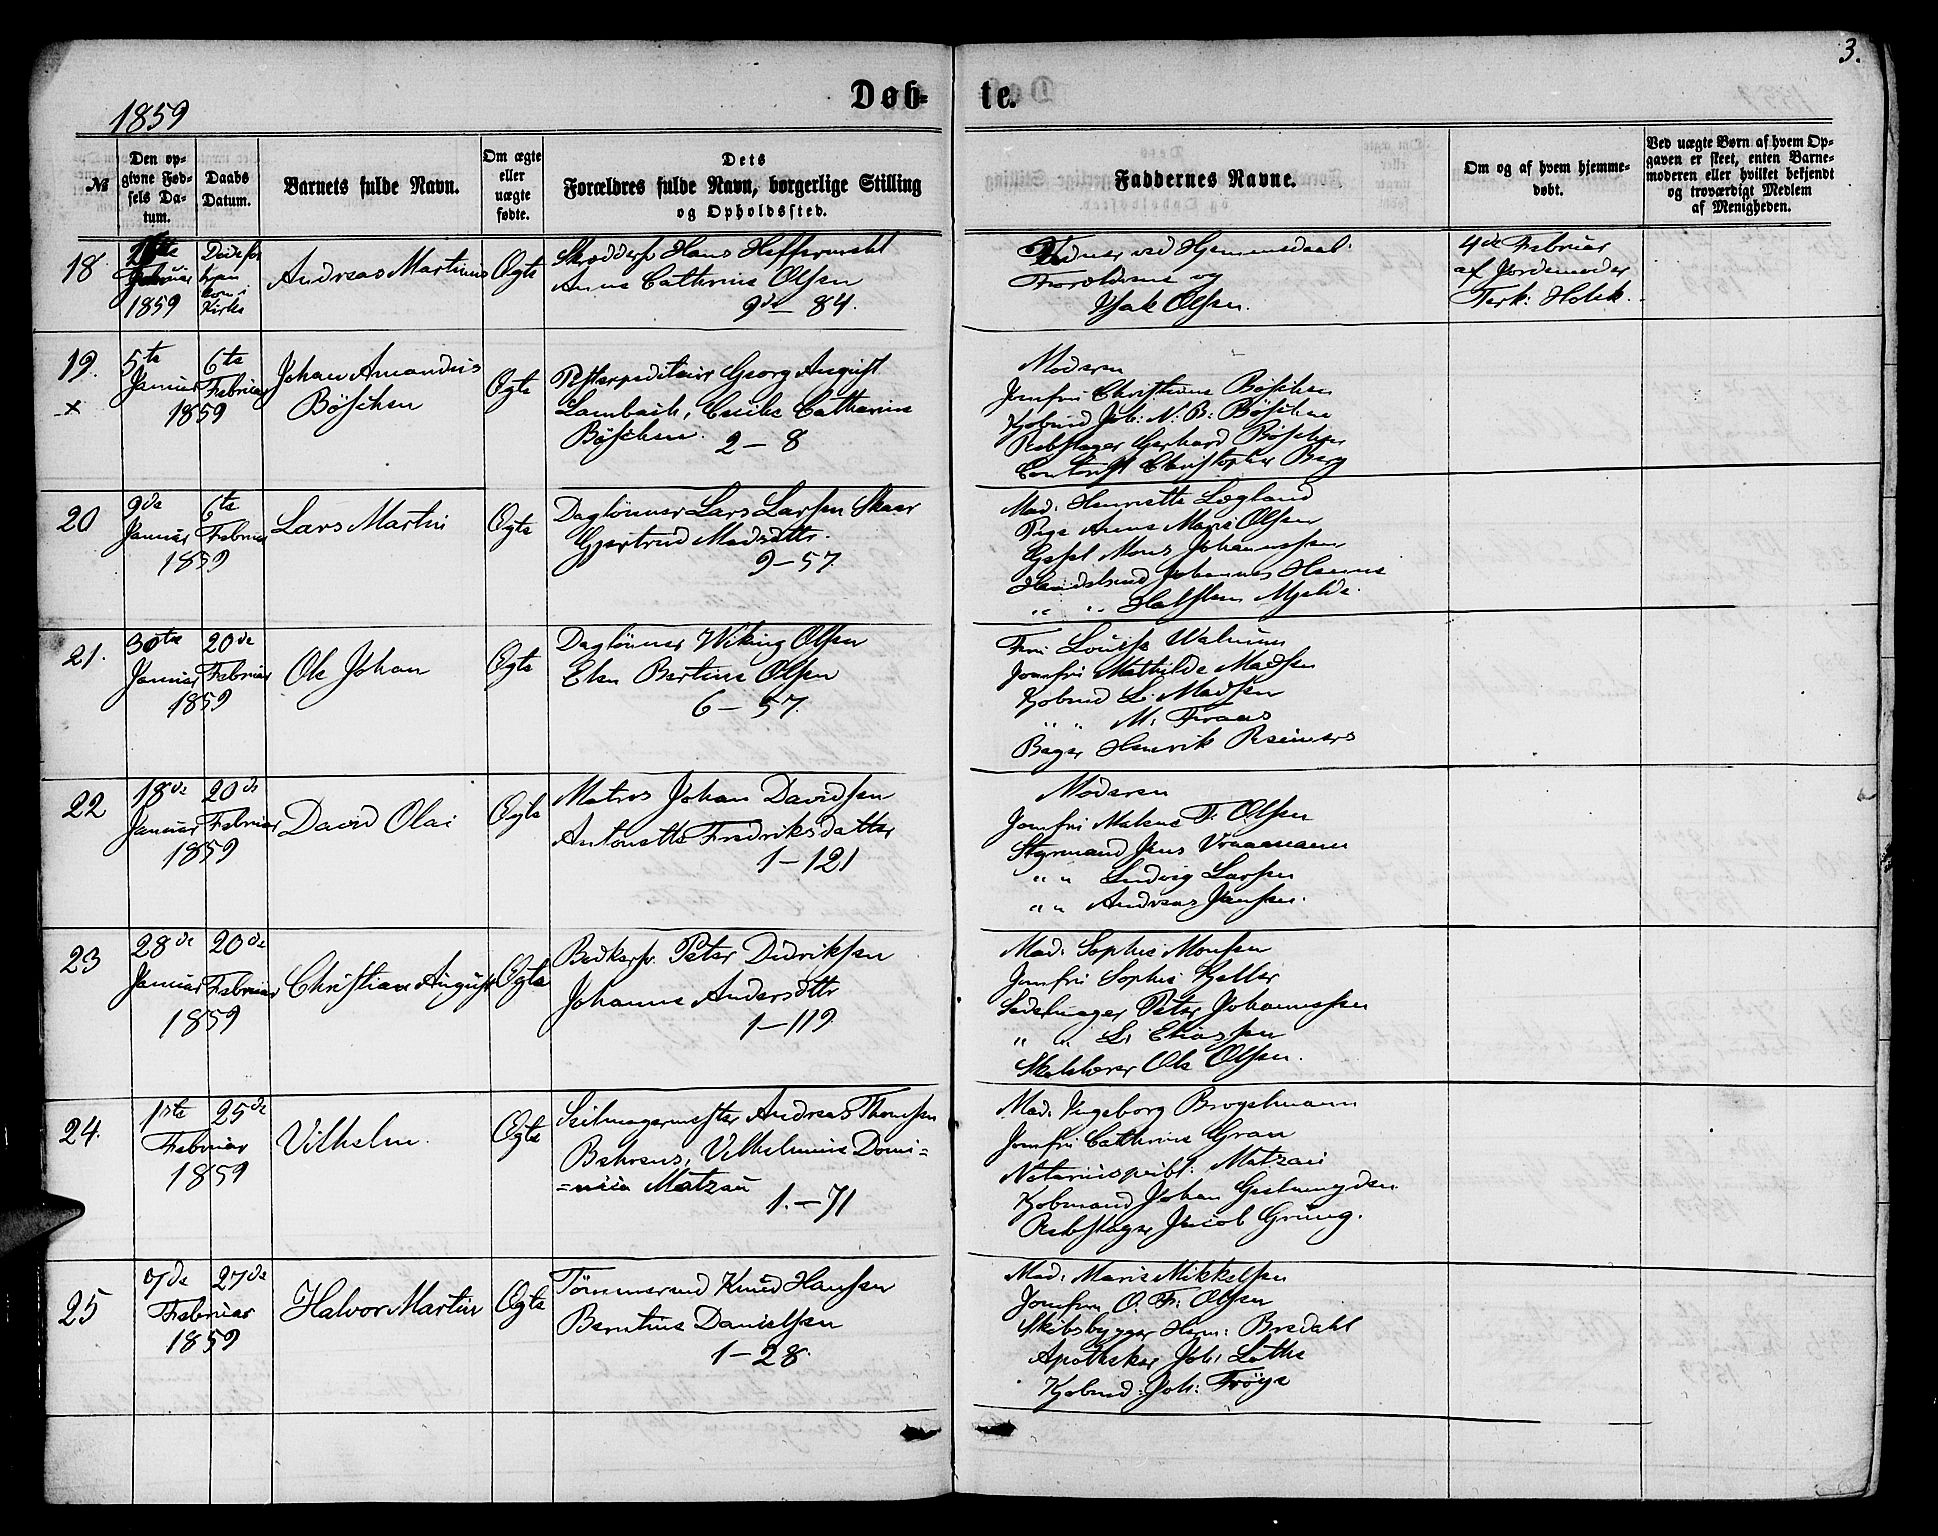 3.
1859
Døb-te.
№
Den opgivne Fødsels Datum.
Daabs Datum.
Barnets fulde Navn.
Om ægte eller uægte fødte.
Dets Forældres fulde Navn, borgerlige Stilling og Opholdssted.
Faddernes Navne.
Om og af hvem hjemmedøbt.
Ved uægte Børn af hvem Opgaven er skeet, enten Barnemoderen eller hvilket bekjendt og troværdigt Medlem af Menigheden.
18
Februar
1859
Kirke
Andreas Martinus
Ægte
Hans
Anne Cathrine Olsen
9de 84.
ved Hjemmedaab
Forældrene og
Isak Olsen.
4de Februar
af Jordemoder
Holck.
19.
5te
Januar
6te
Februar
1859
Johan Amandus
Böschen
Ægte
Georg August
Lambach, Cecilie Catharine
Böschen.
2 - 8
Moderen
Jomfru Christiane Böschen
Kjøbmd Joh: N. B: Böschen
Rebslager Gerhard Böschen
Contorist Christopher Berg
20
9de
Januar
6te
Februar
1859
Lars Martin
Ægte
Daglönner Lars Larsen Skaar
Gjertrud Madsdttr.
9-57
Mad. Henriette Lægland
Pige Anne Marie Olsen
Mons Johannessen
Johannes
" " Halsten Mjelde.
21.
30te
Januar
20de
Februar
1859
Ole Johan
Ægte
Daglönner Wiking Olsen
Elen Bertine Olsen
6-57.
Louise Walnum
Jomfru Mathilde Madsen
Kjøbmd L. Madsen
" " M. Fraas
Bager Henrik Reimers
22
18de
Januar
20de
Februar
1859
David Olai
Ægte
Matros Johan Davidsen
Antonette Fredriksdatter
1-121
Moderen
Jomfru Malene F. Olsen
Styrmand Jens
" " Ludvig Larsen
" " Andreas Jansen.
23
28de
Januar
20de
Februar
1859
Christian August
Ægte
Bødkersv. Peter Didriksen
Johanne Andersdttr
1-119
Mad. Sophie Monsen
Jomfru Sophie Keller
Sadelmager Peter Johannessen
" " L. Eliassen
Skolelærer Ole Olsen.
24.
1ste
Februar
25de
1859
Vilhelm.
Ægte
Seilmagermester Andreas Thomsen
Behrens, Vilhelmine Domi=
=nica Matzau
1.-71
Mad. Ingeborg Brogelmann
Jomfru Cathrine Gran
Matzau
Kjøbmand Johan Geelmuyden
Rebslager Jacob Grung.
25
7de
Februar
27de
1859
Halvor Martin
Ægte
Tömmermd Knud Hansen
Berntine Danielsen
1-28.
Mad. Marie Mikkelsen
Jomfru O. F. Olsen
Skibsbygger Herm: Bredahl
Apotheker Joh: Lothe
Kjøbmd: Joh: Fröye